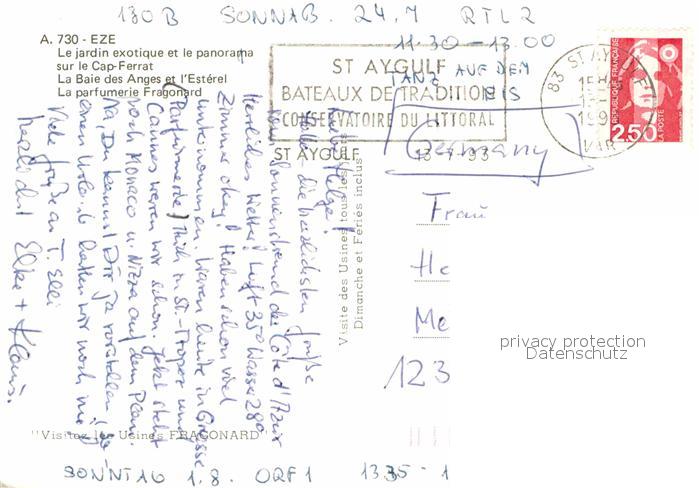 130B SONNAB. 24.7 RTL2
11.30-13.00
TANZ AUF DEM EIS
A. 730 - EZE
Le jardin exotique et le panorama
sur le Cap-Ferrat
La Baie des Anges et l'Estérel
La parfumerie Fragonard
ST AYGULF
BATEAUX DE TRADITION
CONSERVATOIRE DU LITTORAL
ST AYGULF
83 ST AYGULF
VAR
REPUBLIQUE FRANÇAISE
2,50
LA POSTE
Germany
Frau
He
Me
123
privacy protection
Datenschutz
Visite des Usines tous les jours
Dimanche et Fériés inclus
Liebe Helga!
die herzlichsten Grüße
von der Côte d'Azur
Herrliches Wetter, Luft 35° Wasser 28°
Zimmer okay! Haben schon viel
unternommen. Waren heute in Grasse
(Parfümerie) Auch in St.-Tropez und
Cannes waren wir schon. Jetzt steht
noch Monaco u. Nizza auf dem Plan.
Na, Du kannst Dir ja vorstellen
einen Urlaub hatten wir noch nie
Viele Grüße an T. Elli
herzlichst Elke + Klaus.
"Visitez les Usines FRAGONARD"
SONNTAG 1.8. ORF1 13.35-1